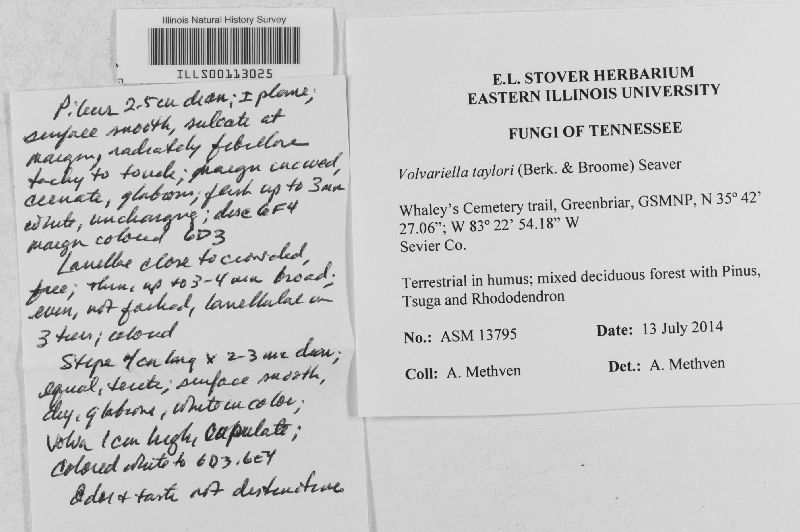 Illinois Natural History Survey
ILLS00113025
Pileus 2.5 cm diam; ± plane;
surface smooth, sulcate at
margin, radiately fibrillose
tacky to touch; margin incurved,
crenate, glabrous; flesh up to 3 mm
white, unchanging; disc 6F4
margin colored 6D3
Lamellae close to crowded,
free; thin, up to 3-4 mm broad;
even, not forked, lamellulae in
3 tiers; colored
Stipe 4 cm long x 2-3 mm diam;
equal, terete; surface smooth,
dry, glabrous, white in color;
Volva 1 cm high, cupulate;
colored white to 6D3.6E4
Odor + taste not distinctive
E.L. STOVER HERBARIUM
EASTERN ILLINOIS UNIVERSITY
FUNGI OF TENNESSEE
Volvariella taylori (Berk. & Broome) Seaver
Whaley's Cemetery trail, Greenbriar, GSMNP, N 35° 42'
27.06"; W 83° 22' 54.18" W
Sevier Co.
Terrestrial in humus; mixed deciduous forest with Pinus,
Tsuga and Rhododendron
No.: ASM 13795 Date: 13 July 2014
Coll: A. Methven Det.: A. Methven